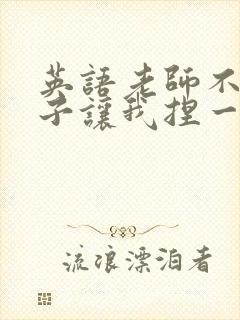 英語老師不
子讓我捏一
流浪漂泊者